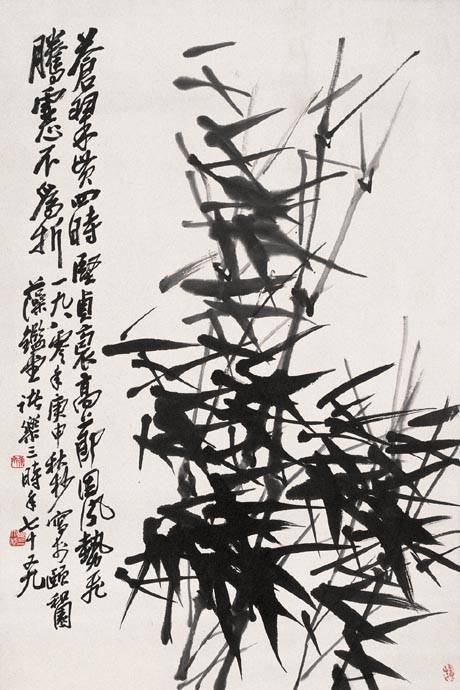 蒼翠貫四時堅貞褱高節風勢飛
騰不為折一九八零年庚申秋杪寫於頤和園
藻鑑堂諸樂三時年七十九